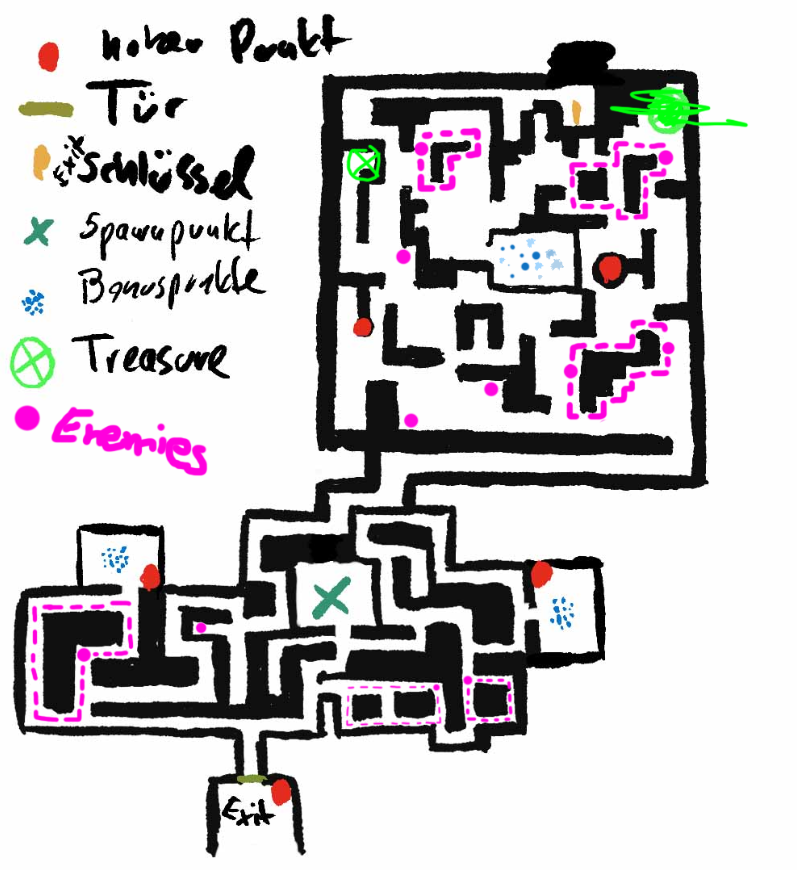 hoher Punkt
Tür
Exit
Schlüssel
Spawnpunkt
Bonuspunkte
Treasure
Enemies
Exit